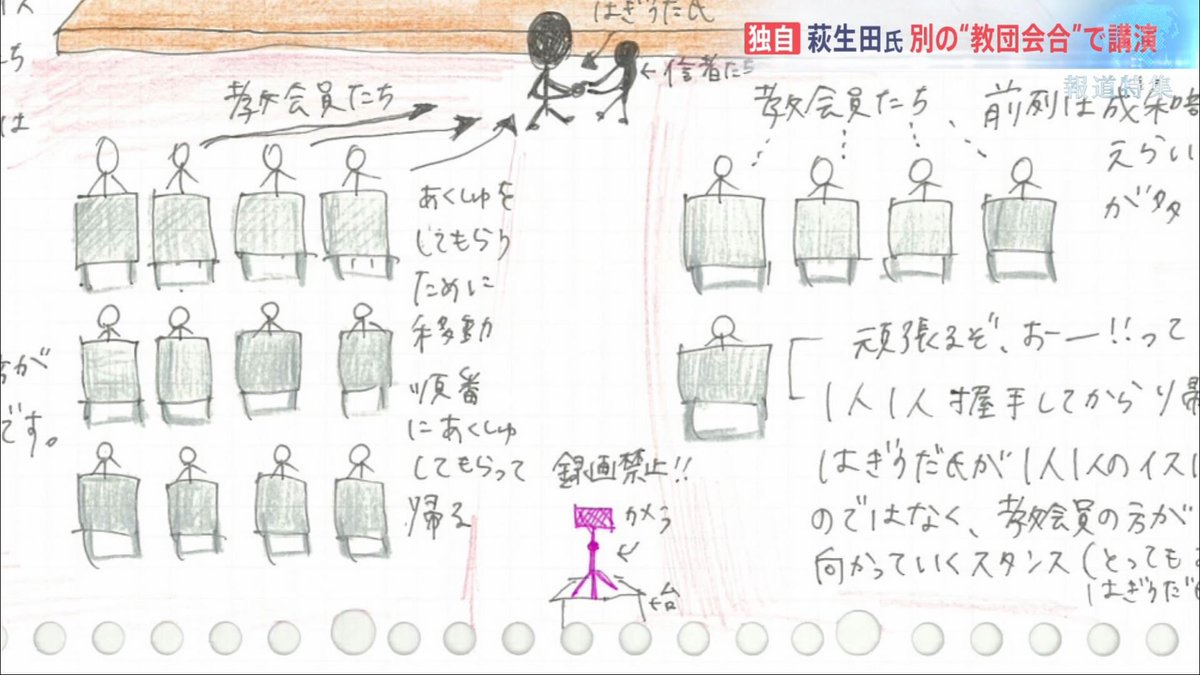 独自 萩生田氏 別の“教団会合”で講演
報道特集
はぎうた氏
←信者たち
教会員たち
教会員たち
えらい
がタタ
あくしゅを
してもらう
ために
移動
順番
にあくしゅ
してもらって
帰る
が
です。
は
録画禁止!!
カメラ
←台
頑張るぞ、おー!!って
1人1人握手してから
はぎうだ氏が1人1人のイス
のではなく、教会員の方が
向かっていくスタンス(とっても
はぎうだ